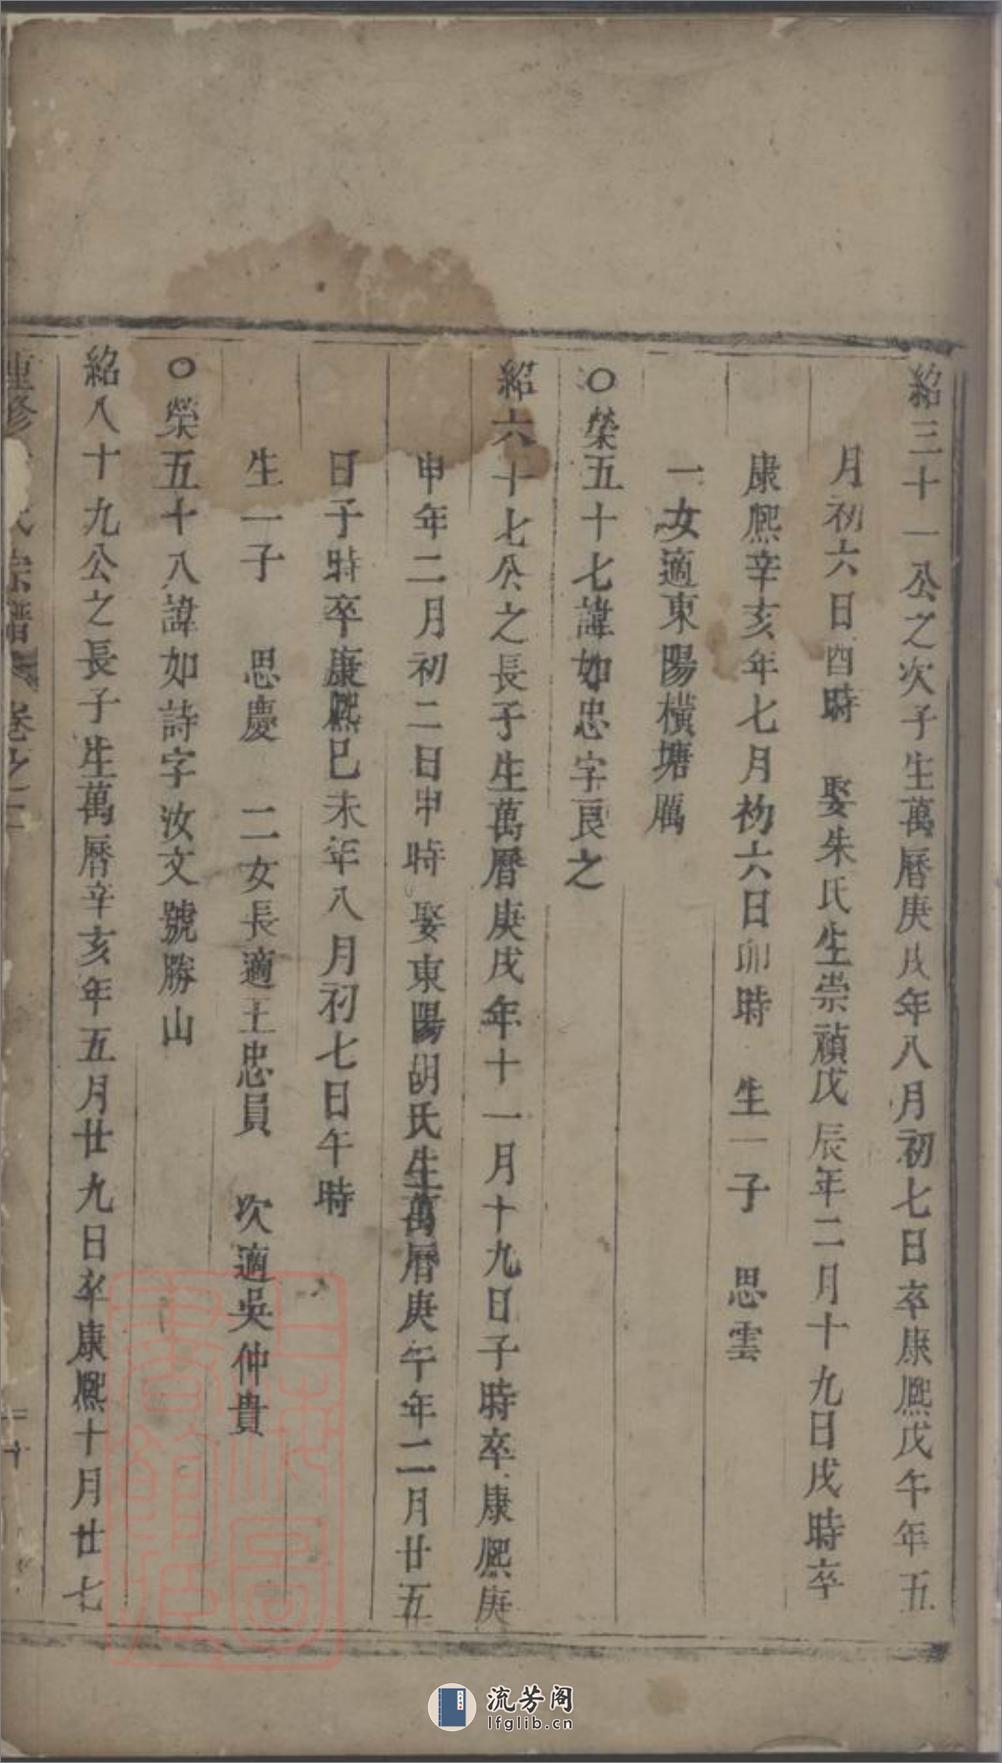 紹三十一公之次子生萬曆庚戌年八月初七日卒康熙戊午年五
月初六日酉時　娶朱氏生崇禎戊辰年二月十九日戌時卒
康熙辛亥年七月初六日卯時　生一子　思雲
一女適東陽橫塘厲
○榮五十七諱如忠字良之
紹六十七公之長子生萬曆庚戌年十一月十九日子時卒康熙庚
申年二月初二日申時　娶東陽胡氏生萬曆庚午年二月廿五
日子時卒康熙已未年八月初七日午時
生一子　思慶　二女長適王忠員　次適吳仲貴
○榮五十八諱如詩字汝文號勝山
紹八十九公之長子生萬曆辛亥年五月廿九日卒康熙十月廿七
重修 氏宗譜 卷之
二十
流芳阁
lfglib.cn